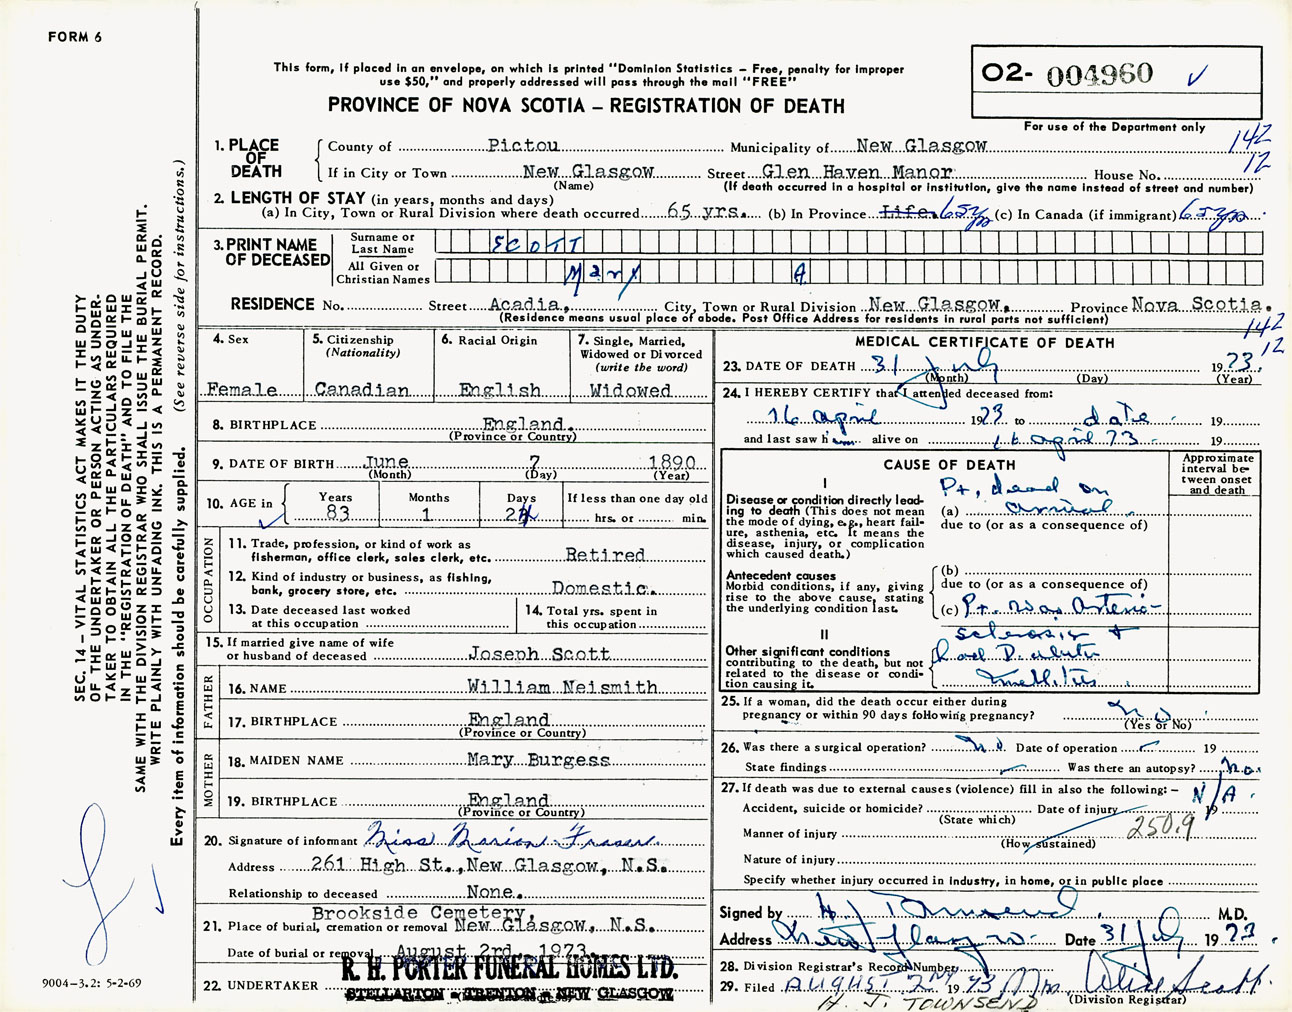 FORM 6
This form, if placed in an envelope, on which is printed "Dominion Statistics – Free, penalty for improper
use $50," and properly addressed will pass through the mail "FREE"
PROVINCE OF NOVA SCOTIA – REGISTRATION OF DEATH
O2- 004960 ✓
For use of the Department only
142
12
1. PLACE OF DEATH
County of Pictou Municipality of New Glasgow
If in City or Town New Glasgow Street Glen Haven Manor House No.
(Name) (If death occurred in a hospital or institution, give the name instead of street and number)
2. LENGTH OF STAY (in years, months and days)
(a) In City, Town or Rural Division where death occurred 65 yrs. (b) In Province Life. 65 yrs (c) In Canada (if immigrant) 65 yrs
3. PRINT NAME OF DECEASED
Surname or Last Name SCOTT
All Given or Christian Names Mary A
RESIDENCE No. Street Acadia, City, Town or Rural Division New Glasgow, Province Nova Scotia.
(Residence means usual place of abode. Post Office Address for residents in rural parts not sufficient)
142
12
4. Sex
Female
5. Citizenship
(Nationality)
Canadian
6. Racial Origin
English
7. Single, Married,
Widowed or Divorced
(write the word)
Widowed
8. BIRTHPLACE England.
(Province or Country)
9. DATE OF BIRTH June 7 1890
(Month) (Day) (Year)
10. AGE in
Years 83
Months 1
Days 24
If less than one day old
hrs. or min.
OCCUPATION
11. Trade, profession, or kind of work as
fisherman, office clerk, sales clerk, etc. Retired
12. Kind of industry or business, as fishing,
bank, grocery store, etc. Domestic.
13. Date deceased last worked
at this occupation
14. Total yrs. spent in
this occupation
15. If married give name of wife
or husband of deceased Joseph Scott
FATHER
16. NAME William Neismith
17. BIRTHPLACE England
(Province or Country)
MOTHER
18. MAIDEN NAME Mary Burgess
19. BIRTHPLACE England
(Province or Country)
20. Signature of informant Miss Marion Fraser
Address 261 High St., New Glasgow, N.S.
Relationship to deceased None.
Brookside Cemetery,
21. Place of burial, cremation or removal New Glasgow, N.S.
Date of burial or removal August 2nd, 1973
R. H. PORTER FUNERAL HOMES LTD.
22. UNDERTAKER STELLARTON - TRENTON - NEW GLASGOW
MEDICAL CERTIFICATE OF DEATH
23. DATE OF DEATH 31 July 1973.
(Month) (Day) (Year)
24. I HEREBY CERTIFY that I attended deceased from:
16 April 1973 to date 19
and last saw him alive on 16 April 73 19
CAUSE OF DEATH
Approximate
interval be-
tween onset
and death
I
Disease or condition directly lead-
ing to death (This does not mean
the mode of dying, e.g., heart fail-
ure, asthenia, etc. It means the
disease, injury, or complication
which caused death.)
Pt. dead on
(a) arrival
due to (or as a consequence of)
Antecedent causes
Morbid conditions, if any, giving
rise to the above cause, stating
the underlying condition last.
(b)
due to (or as a consequence of)
(c) Pt. was Arterio-
sclerosis +
II
Other significant conditions
contributing to the death, but not
related to the disease or condi-
tion causing it.
had Diabetes
mellitus
25. If a woman, did the death occur either during
pregnancy or within 90 days following pregnancy? No
(Yes or No)
26. Was there a surgical operation? No Date of operation 19
State findings Was there an autopsy? No.
27. If death was due to external causes (violence) fill in also the following: – N/A
Accident, suicide or homicide? Date of injury 19
(State which)
Manner of injury 250.9
(How sustained)
Nature of injury
Specify whether injury occurred in industry, in home, or in public place
Signed by H. J Townsend M.D.
Address New Glasgow Date 31 July 1973.
28. Division Registrar's Record Number
29. Filed AUGUST 2nd 1973 Mrs. Alice Scott
(Division Registrar)
H. J. TOWNSEND
SEC. 14 – VITAL STATISTICS ACT MAKES IT THE DUTY
OF THE UNDERTAKER OR PERSON ACTING AS UNDER-
TAKER TO OBTAIN ALL THE PARTICULARS REQUIRED
IN THE "REGISTRATION OF DEATH" AND TO FILE THE
SAME WITH THE DIVISION REGISTRAR WHO SHALL ISSUE THE BURIAL PERMIT.
WRITE PLAINLY WITH UNFADING INK. THIS IS A PERMANENT RECORD.
Every item of information should be carefully supplied. (See reverse side for instructions.)
9004–3.2: 5-2-69